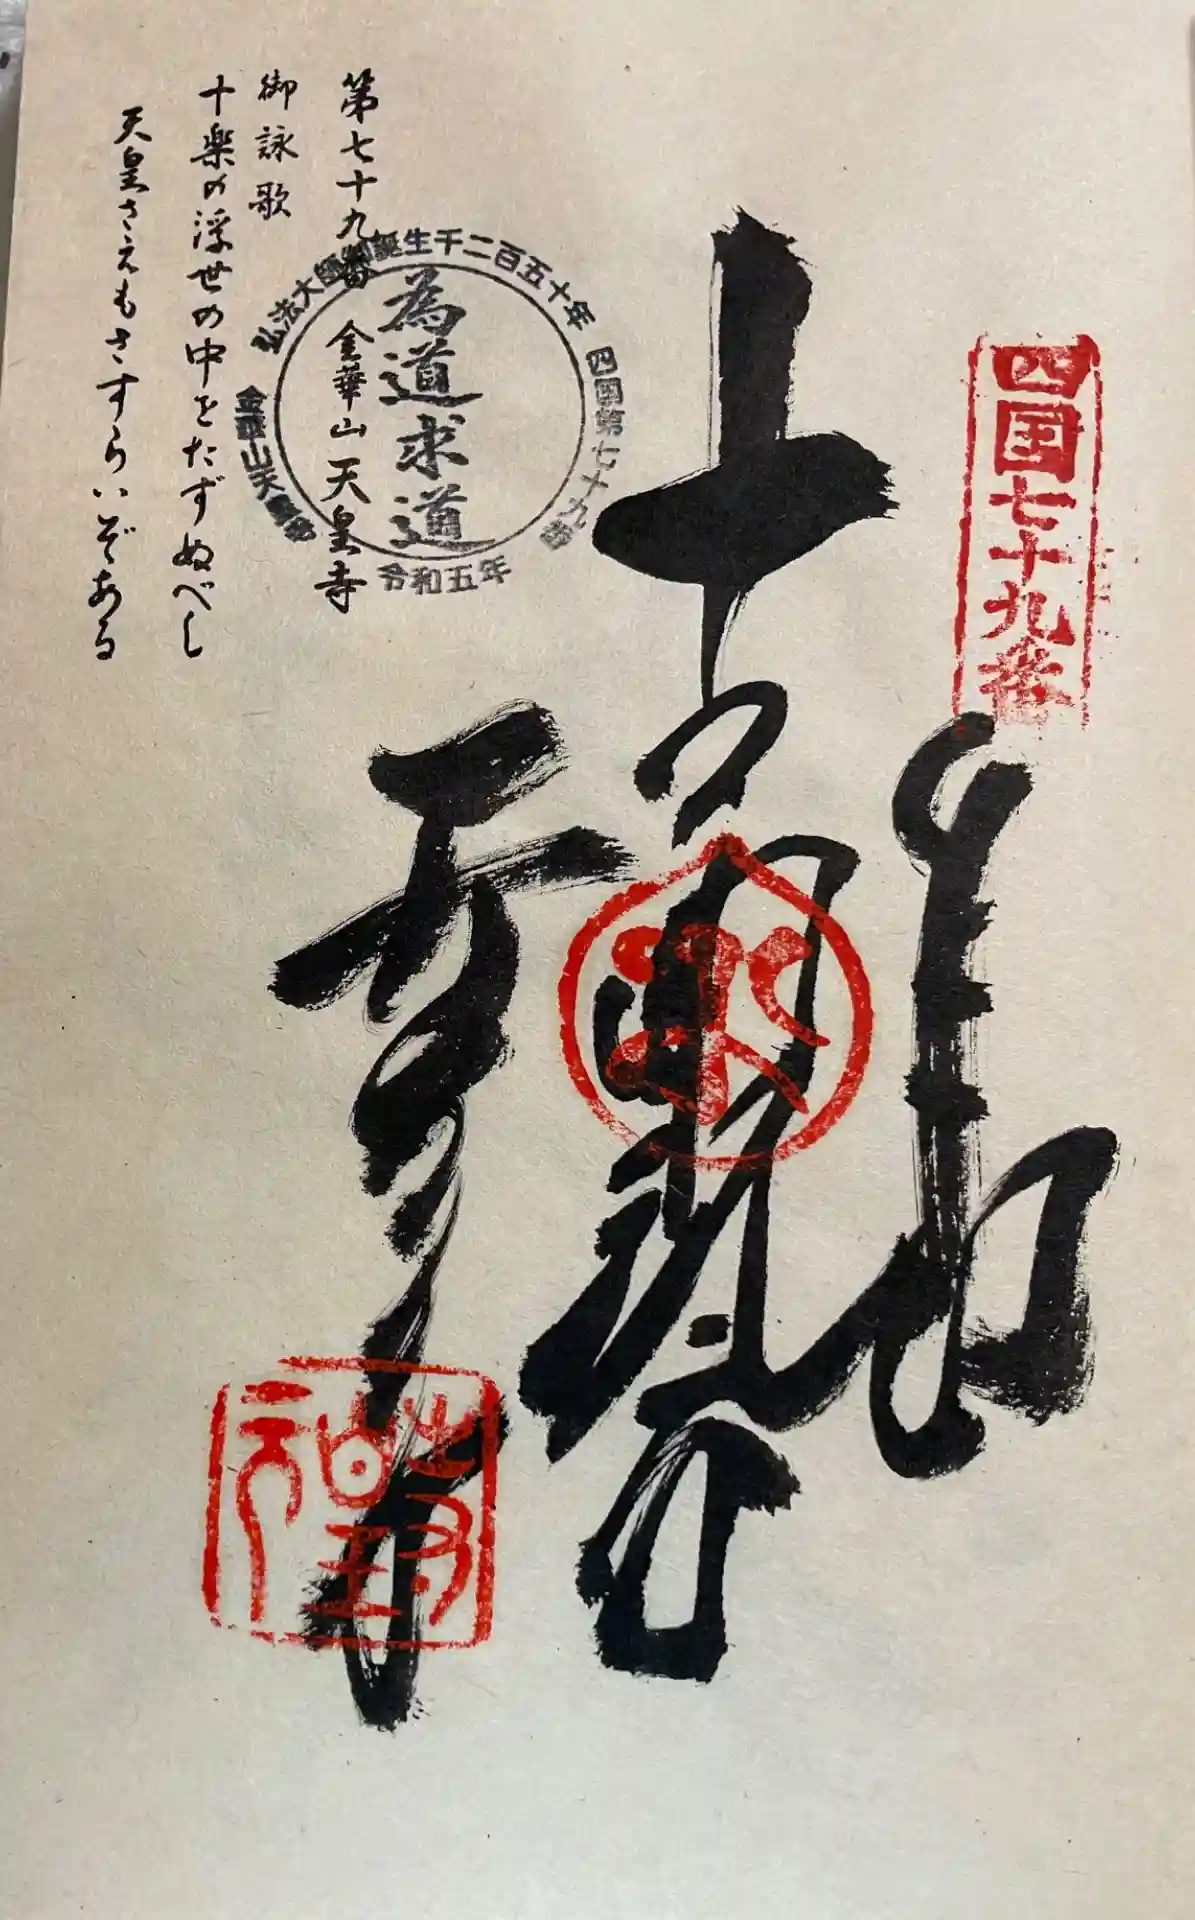 四国七十九番
奉納
十一面観世音
天皇寺
第七十九番 金華山 天皇寺
御詠歌
十楽の浮世の中をたずぬべし
天皇さえもさすらいぞある
弘法大師御誕生千二百五十年
四国第七十九番
金華山天皇寺
為道求道
令和五年